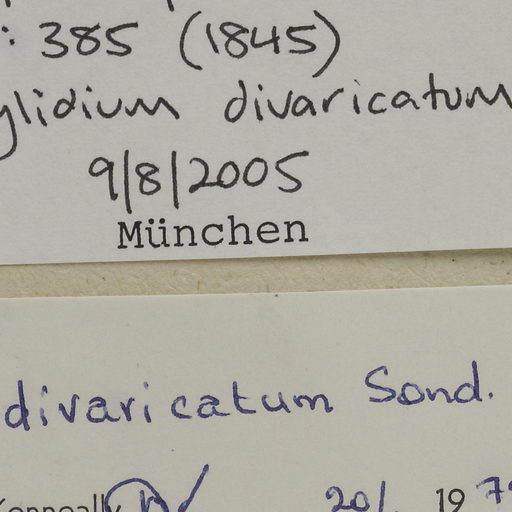 : 385 (1845)
ylidium divaricatum
9/8/2005
München
divaricatum Sond.
20/ 19 7